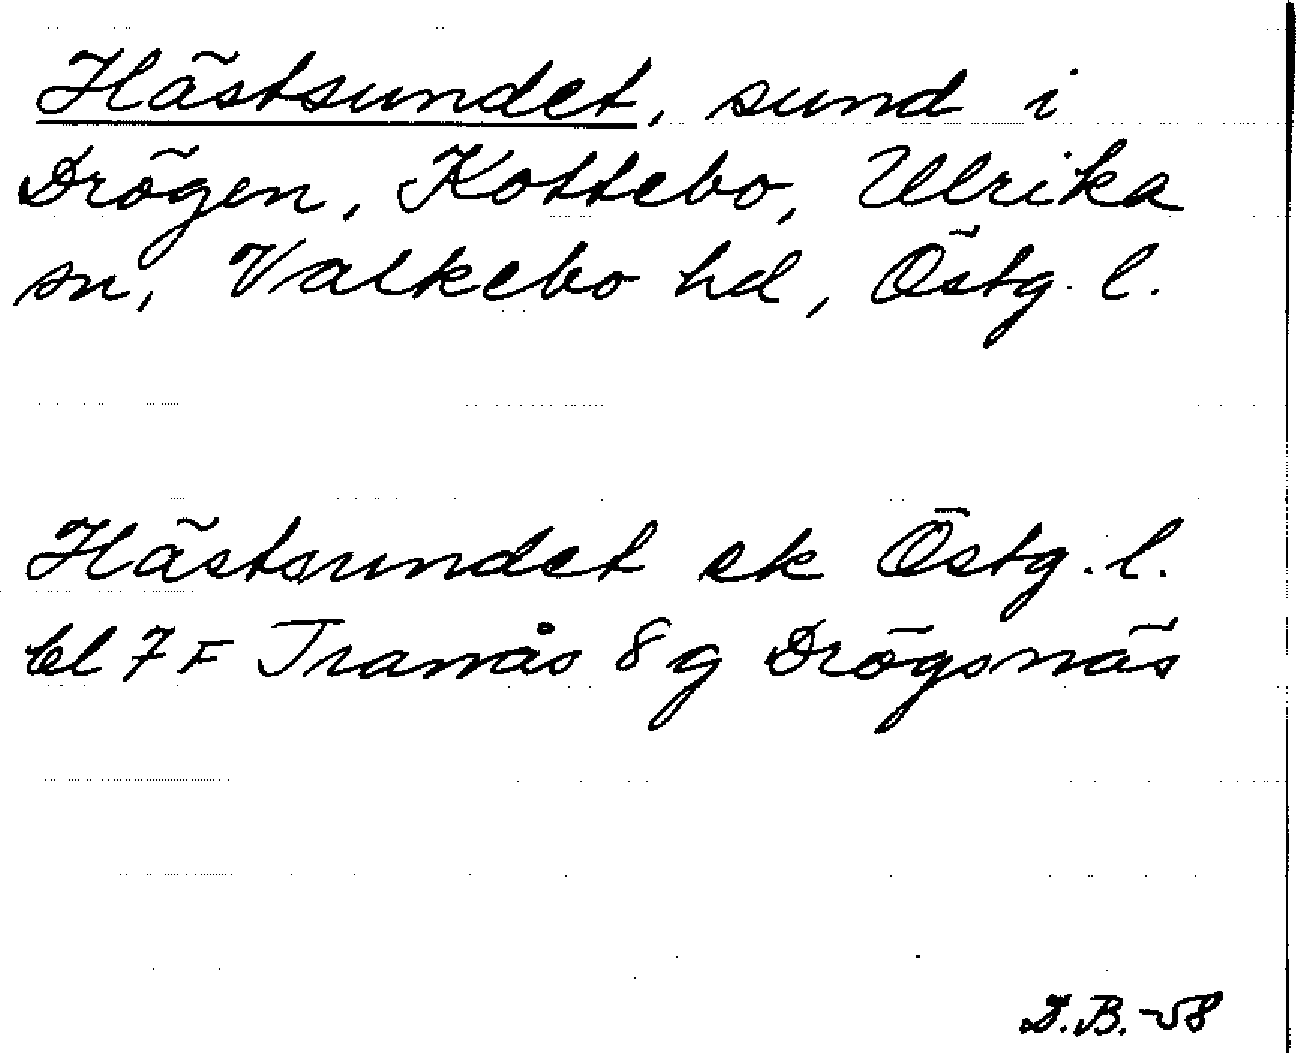 Hästsundet, sund i
Drögen, Kottebo, Ulrika
sn, Valkebo hd, Östg. l.
Hästsundet ek Östg. l.
bl 7 F Tranås 8 g Drögsnäs
D.B.-58